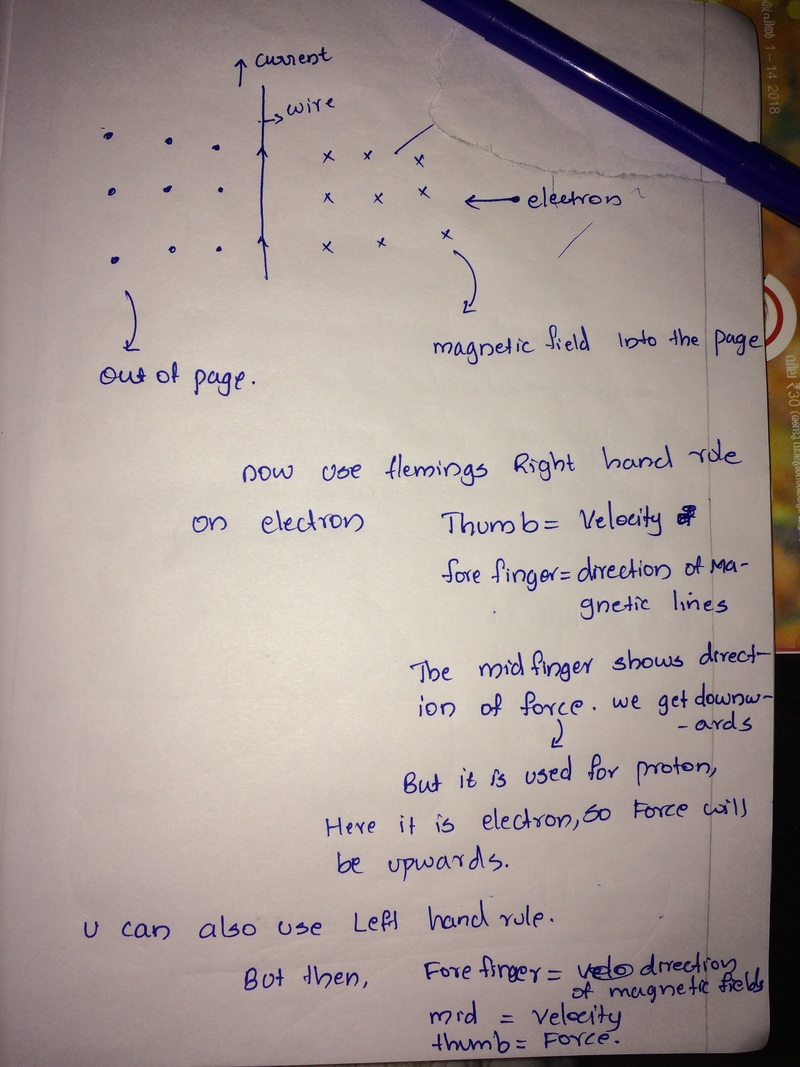 ↑ current
→ wire
← electron
magnetic field into the page
out of page.
now use flemings Right hand rule
on electron
Thumb = Velocity
fore finger = direction of Ma-
gnetic lines
The mid finger shows direct-
ion of force. we get downw-
-ards
But it is used for proton,
Here it is electron, so Force will
be upwards.
U can also use Left hand rule.
But then,
Fore finger = direction
of magnetic fields
mid = velocity
thumb = Force.
1 - 14 2018
വില ₹30